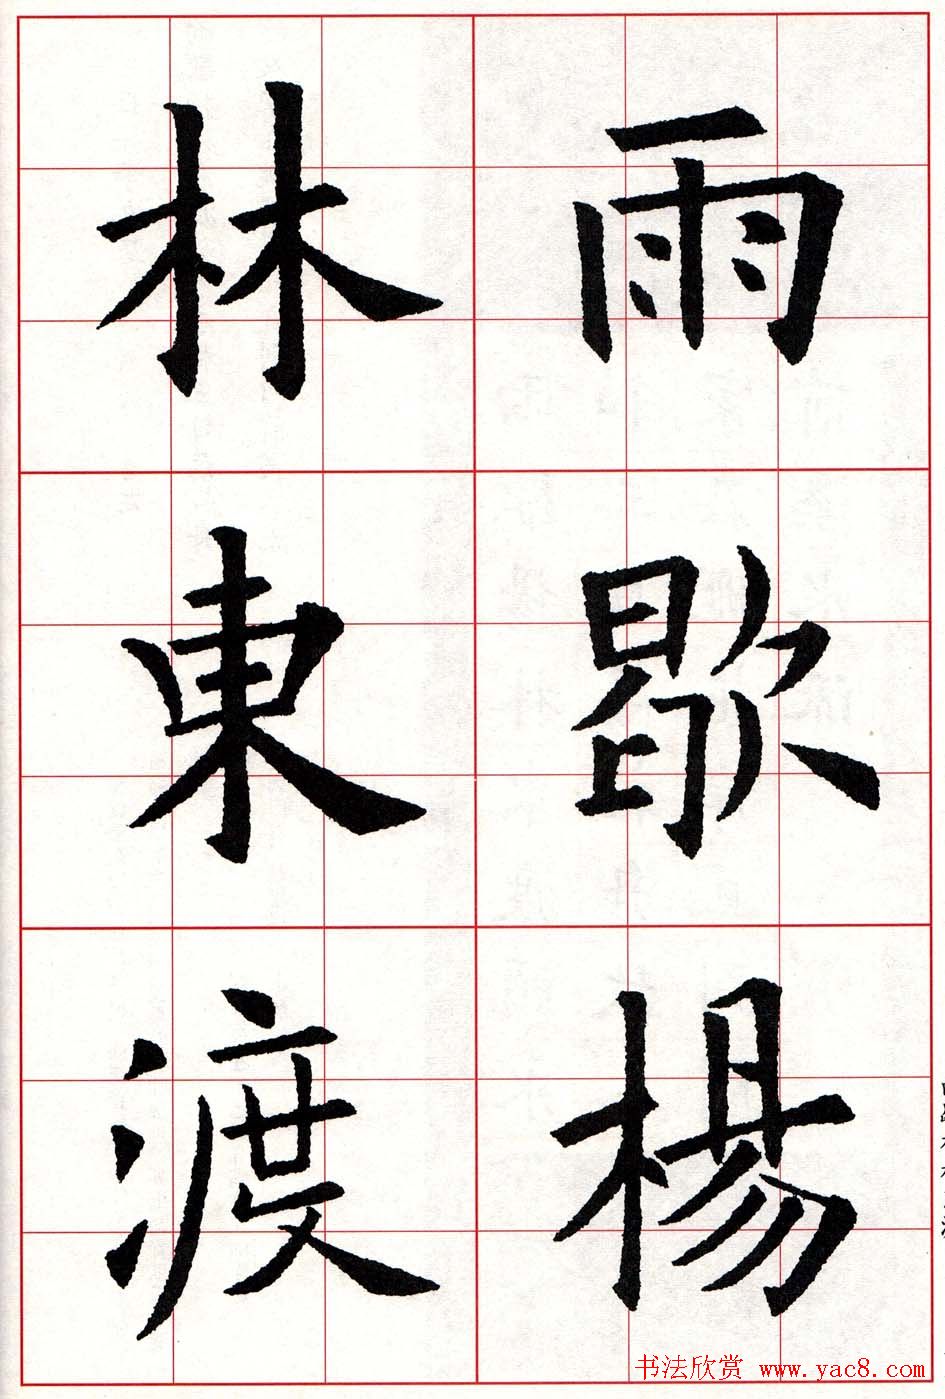 雨歇楊
林東渡
书法欣赏 www.yac8.com